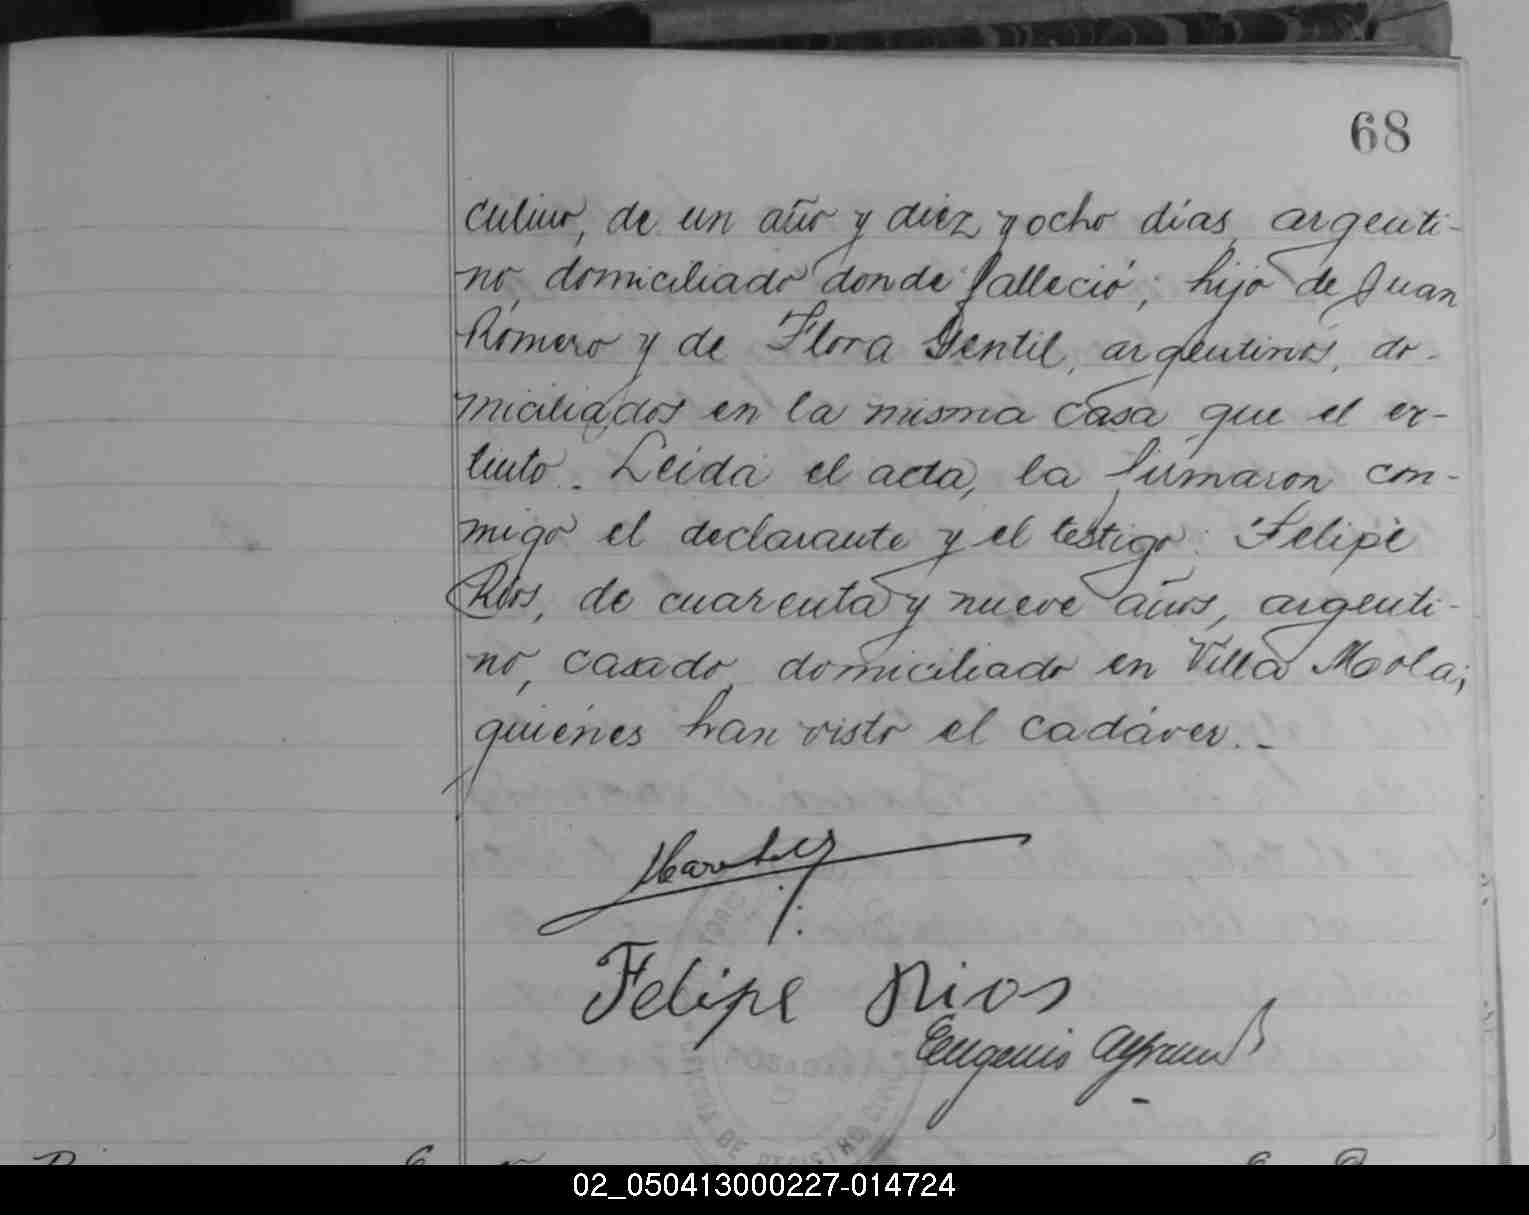 68
culino, de un año y diez y ocho días, argenti-
no, domiciliado donde falleció; hijo de Juan
Romero y de Flora Gentil, argentinos, do-
miciliados en la misma casa que el ex-
tinto. Leída el acta, la firmaron con-
migo el declarante y el testigo: Felipe
Rios, de cuarenta y nueve años, argenti-
no, casado, domiciliado en Villa Mola;
quiénes han visto el cadáver.-
Felipe Rios
Eugenio
DE REGISTRO CIVIL
02_050413000227-014724